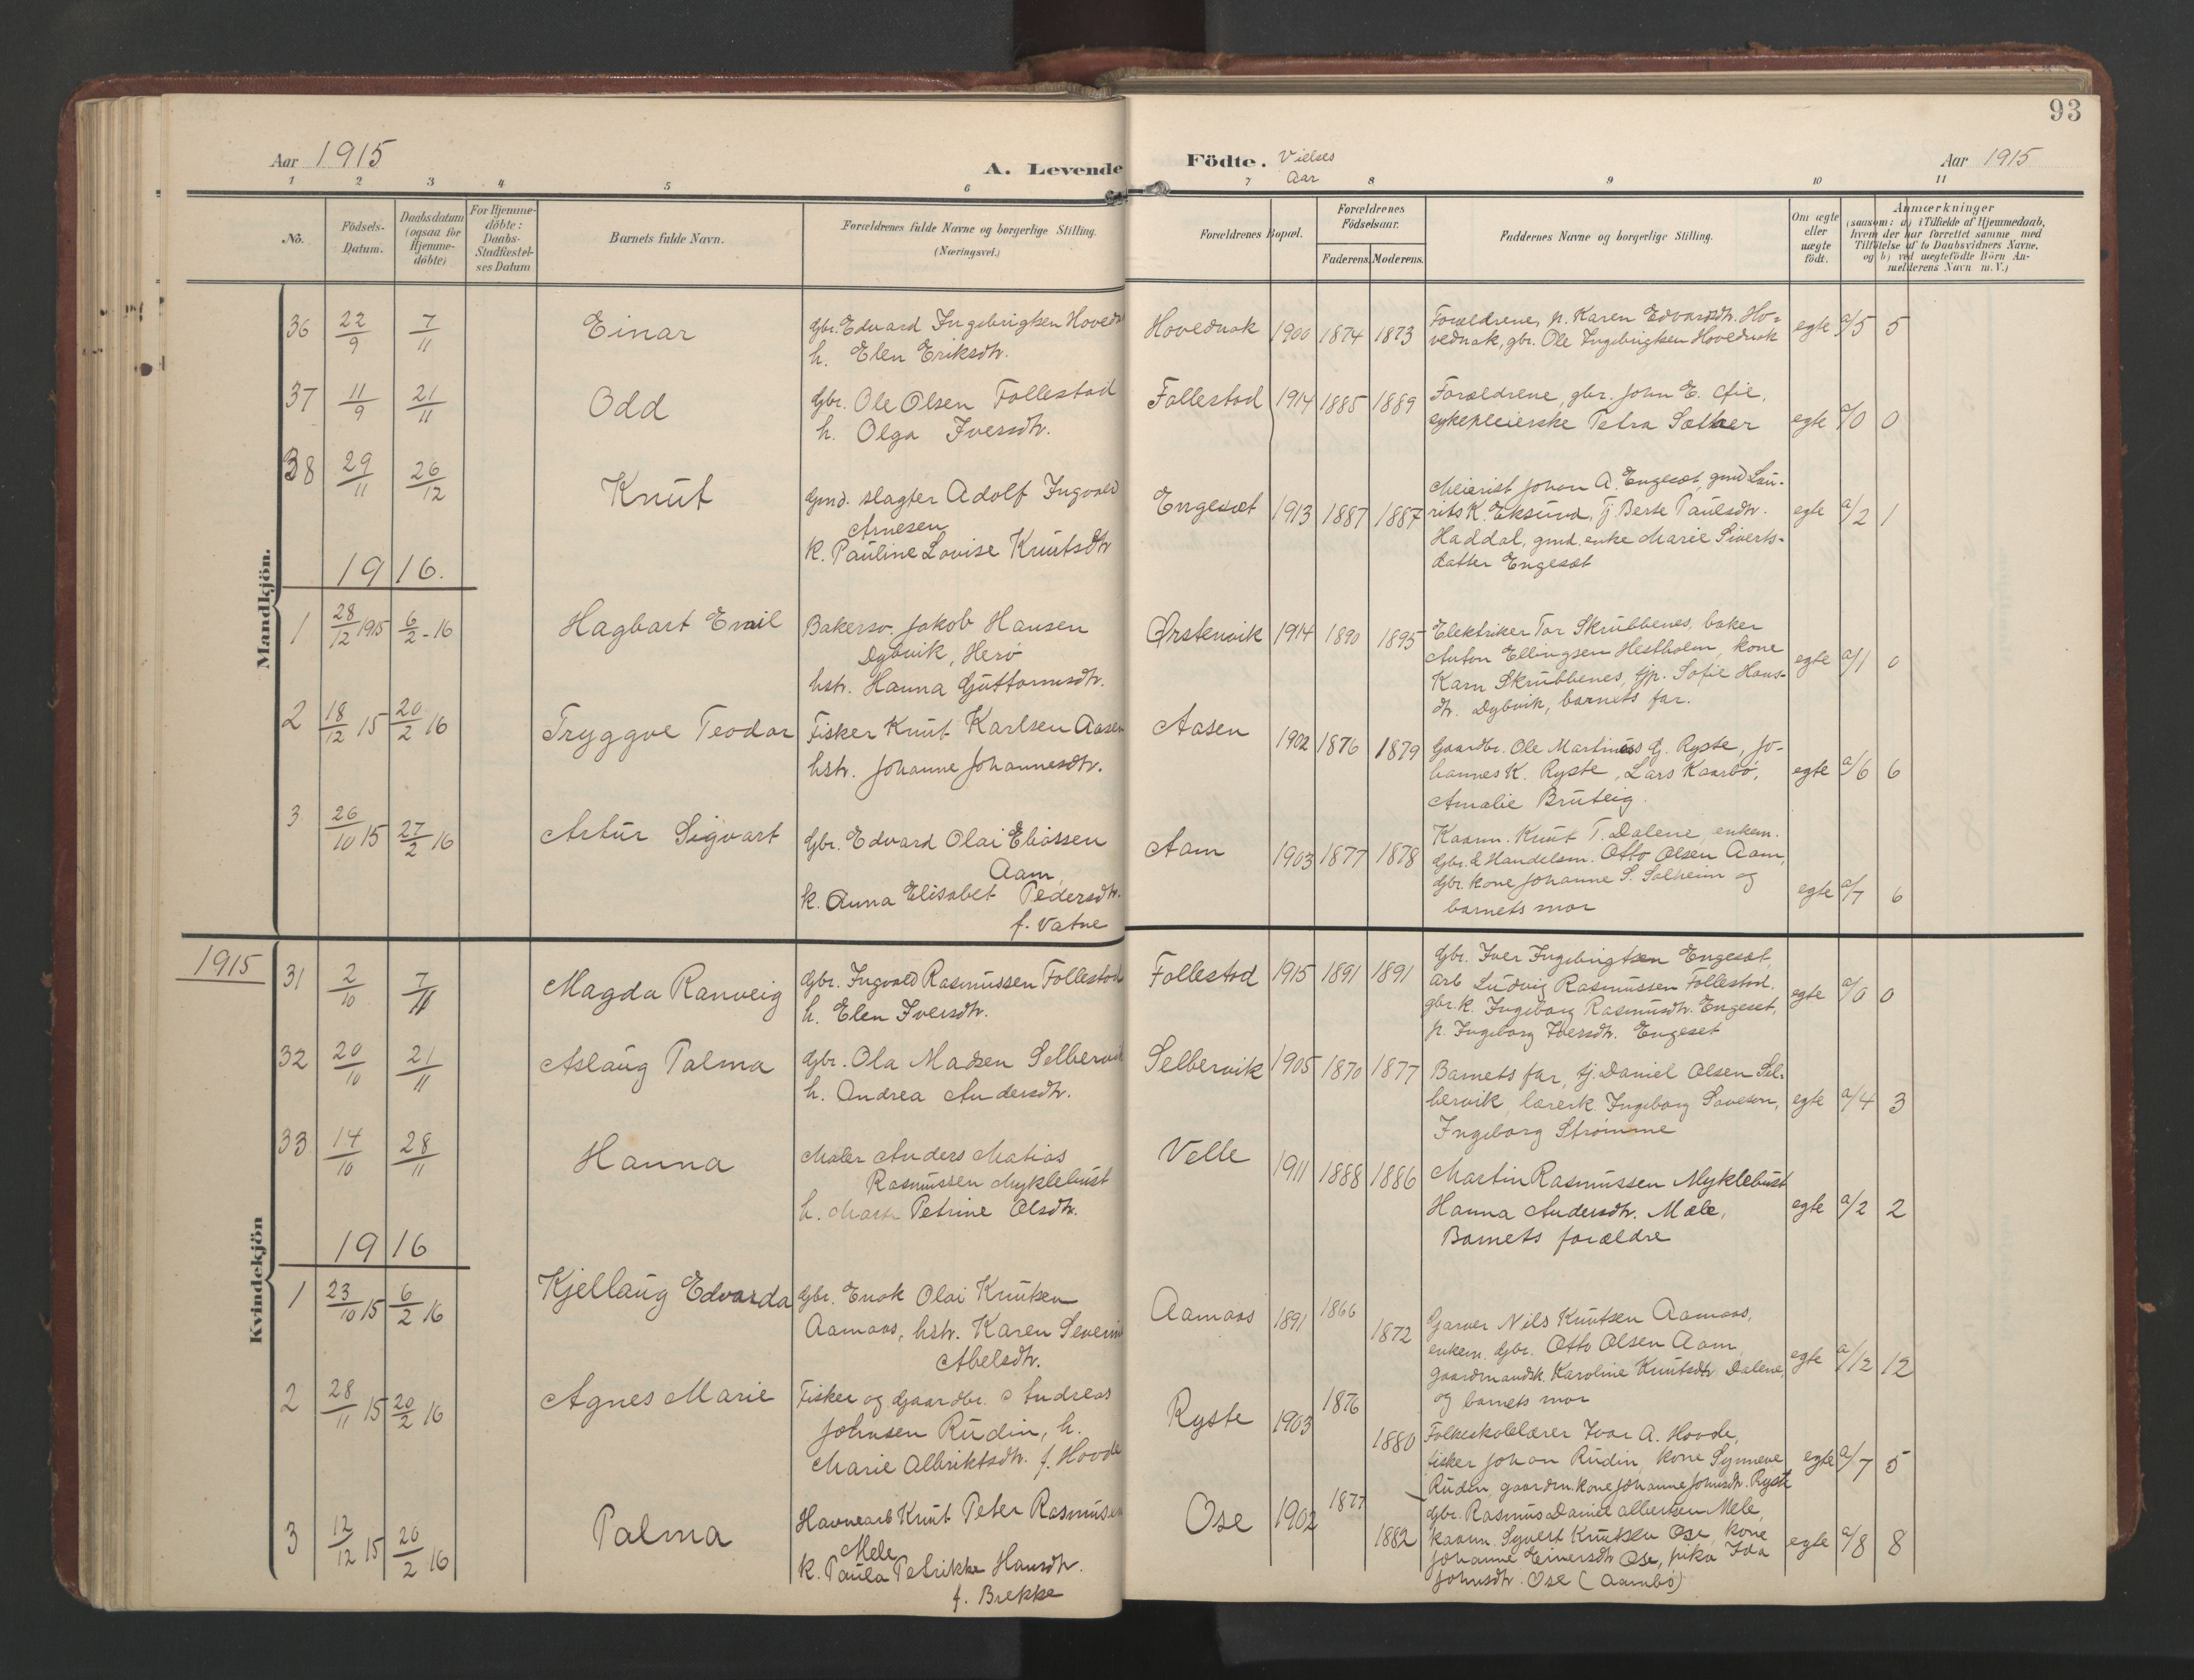 93
Aar 1915
A. Levende Födte.
Vielses Aar
Aar 1915
1 2 3 4 5 6 7 8 9 10 11
No.
Födsels-Datum.
Daabsdatum (ogsaa for Hjemme-döbte)
For Hjemme-döbte: Daabs-Stadfæstel-ses Datum
Barnets fulde Navn.
Forældrenes fulde Navne og borgerlige Stilling. (Næringsvei.)
Forældrenes Bopæl.
Forældrenes Födselsaar.
Faderens. Moderens.
Faddernes Navne og borgerlige Stilling.
Om ægte eller uægte födt.
Anmærkninger
(saasom: a) i Tilfælde af Hjemmedaab,
hvem der har forrettet samme med
Tilföielse af to Daabsvidners Navne,
og b) ved uægtefödte Börn An-
melderens Navn m. V.)
Mandkjön.
36 22/9 7/11 Einar
Gbr. Edvard Ingebrigtsen Hovednak
h. Elen Eriksdtr.
Hovednak 1900 1874 1873
Forældrene, p. Karen Edvardsdtr. Ho-
vednak, gbr. Ole Ingebrigtsen Hovednak
egte a/5 5
37 11/9 21/11 Odd
Gbr. Ole Olsen Follestad
h. Olga Iversdtr.
Follestad 1914 1885 1889
Forældrene, gbr. John E.
sykepleierske Petra Sæther
egte a/0 0
38 29/11 26/12 Knut
Gmd. slagter Adolf Ingvald
Arnesen
k. Pauline Lovise Knutsdtr
Engesæt 1913 1887 1887
Meierist Johan A. Engesæt, gmd Lau-
rits K. Eksund, Tj Berte Paulsdtr.
Haddal, gmd. enke Marie Siverts-
datter Engesæt
egte a/2 1
1916.
1 28/12 1915 6/2-16 Hagbart Emil
Bakersv. Jakob Hansen
Dybvik, Herø
hstr. Hanna Guttormsdtr.
Ørstenvik 1914 1890 1895
Elektriker Tor Skrubbenes, baker
Anton Ellingsen Hestholm, kone
Karn Skrubbenes, tjp. Sofie Hans-
dtr. Dybvik, barnets far.
egte a/1 0
2 18/12 15 20/2 16 Tryggve Teodor
Fisker Knut Karlsen Aasen
hstr. Johanne Johannesdtr.
Aasen 1902 1876 1879
Gaardbr. Ole Martinus G. Ryste, Jo-
hannes K. Ryste, Lars Kaarbø,
Amalie Bruteig.
egte a/6 6
3 26/10 15 27/2 16 Artur Sigvart
Gbr. Edvard Olai Eliassen
Aam,
k. Anna Elisabet Pedersdtr.
f. Vatne
Aam 1903 1877 1878
Kaarm. Knut T. Dalene, enkem.
Gbr. & Handelsm. Otto Olsen Aam,
Gbr. kone Johanne S. Solheim og
barnets mor
egte a/7 6
Kvindekjön
1915
31 2/10 7/11 Magda Ranveig
Gbr. Ingvald Rasmussen Follestad
h. Elen Iversdtr.
Follestad 1915 1891 1891
Gbr. Iver Ingebrigtsen Engesæt,
arb Ludvig Rasmussen Follestad,
gbr. k. Ingeborg Rasmusdtr. Engeset,
p. Ingeborg Iversdtr. Engeset
egte a/0 0
32 20/10 21/11 Aslaug Palma
Gbr. Ola Madsen Selbervik
h. Andrea Andersdtr.
Selbervik 1905 1870 1877
Barnets far, tj. Daniel Olsen Sel-
bervik, lærerk. Ingeborg Saveson,
Ingeborg Strømme
egte a/4 3
33 14/10 28/11 Hanna
Maler Anders Matias
Rasmussen Myklebust
h. Petrine Olsdtr.
Velle 1911 1888 1886
Martin Rasmussen Myklebust
Hanna Andersdtr. Mele,
Barnets forældre
egte a/2 2
1916
1 23/10 15 6/2 16 Kjellaug Edvarda
Gbr. Enok Olai Knutsen
Aamaas, hstr. Karen Severine
Abelsdtr.
Aamaas 1891 1866 1872
Garver Nils Knutsen Aamaas,
enkem. Gbr. Otto Olsen Aam,
Gaardmandsk. Karoline Knutsdtr Dalene,
og barnets mor
egte a/12 12
2 28/11 15 20/2 16 Agnes Marie
Fisker og Gaardbr. Andreas
Johnsen Rudin, h.
Marie Albriktsdtr. f. Hovde
Ryste 1903 1876 1880
Folkeskolelærer Ivar A. Hovde,
fisker Johan Rudin, kone Synneve
Rudin, gaardm. kone Johanne Johnsdtr. Ryste
egte a/7 5
3 12/12 15 20/2 16 Palma
Havnearb Knut Peter Rasmussen
Mele
k. Paula Petrikke Hansdtr.
f. Brekke
Ose 1902 1877 1882
Gbr. Rasmus Daniel Albertsen Mele,
kaarm. Syvert Knutsen Ose, kone
Johanne Einersdtr Ose, pike Ida
Johnsdtr. Ose (Aambø)
egte a/8 8